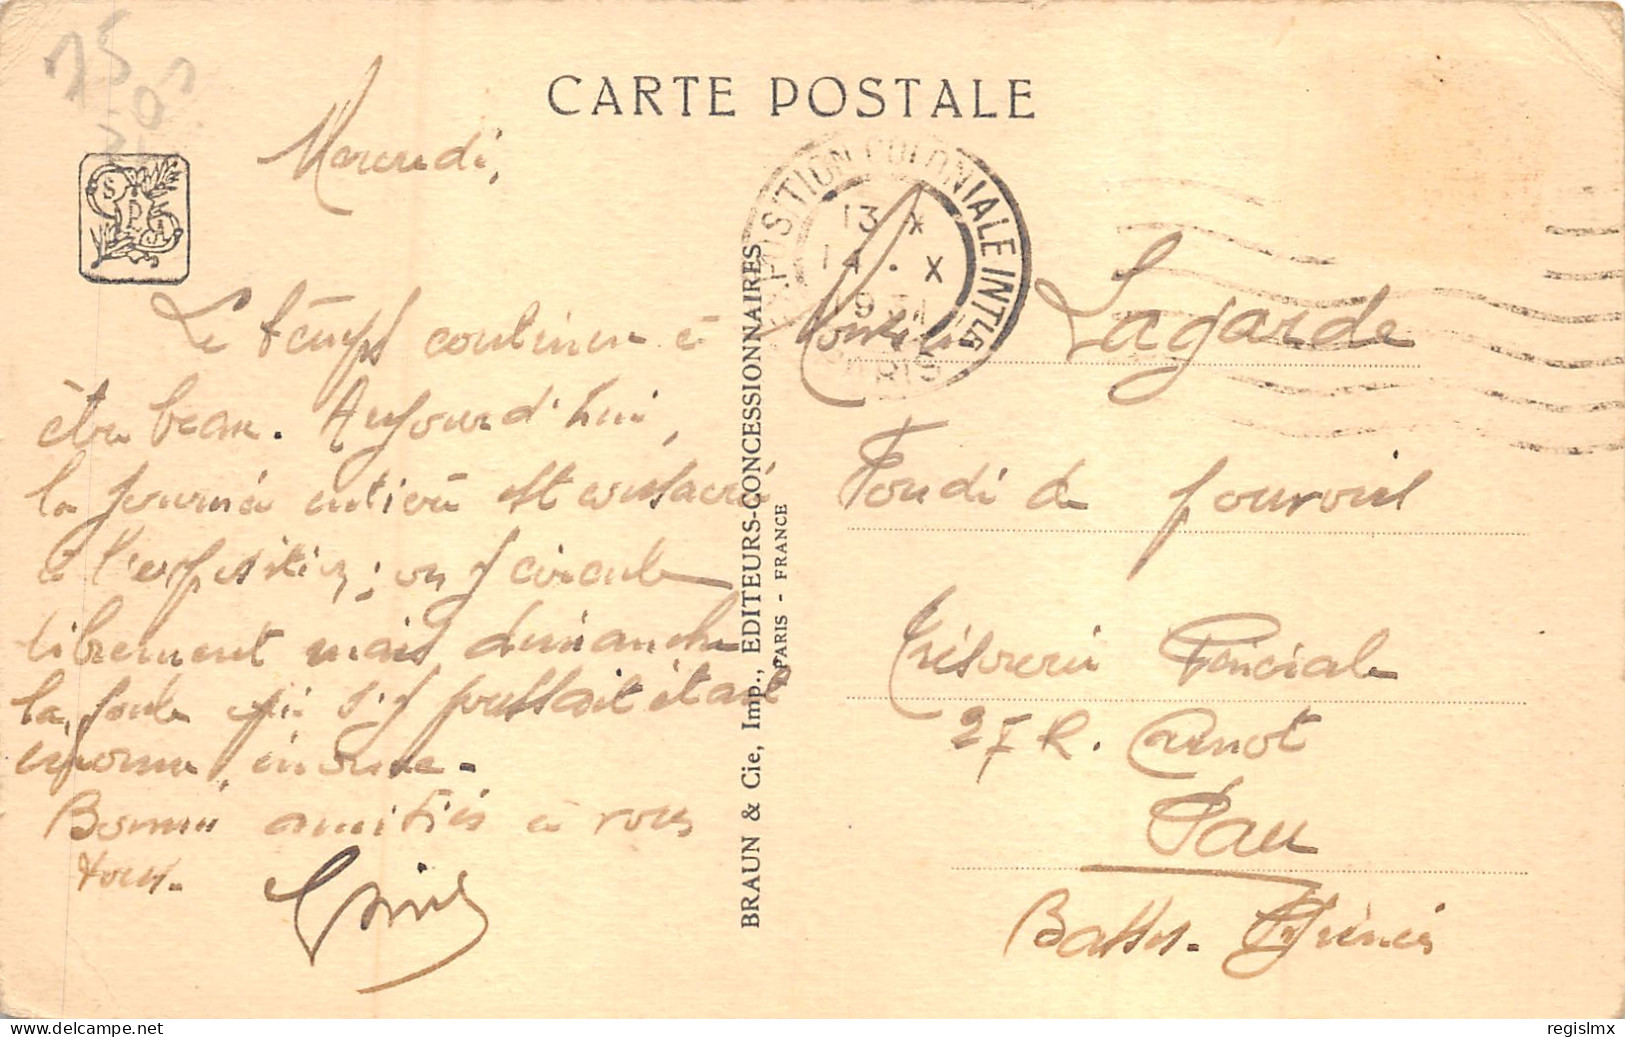 CARTE POSTALE
Mercredi,
Le temps continue à
être beau. Aujourd'hui,
la journée entière est consacrée
à l'exposition ; on y circule
librement mais dimanche
la foule qui s'y pressait était
énorme, énorme.
Bonnes amitiés à vous
tous.
BRAUN & Cie, Imp., EDITEURS-CONCESSIONNAIRES
PARIS - FRANCE
SPA
EXPOSITION COLONIALE INTLE
PARIS
13 X
14 . X
1931
Lagarde
Fondé de pouvoirs
Trésorerie Générale
27 R. Carnot
Pau
Basses-Pyrénées
regislmx